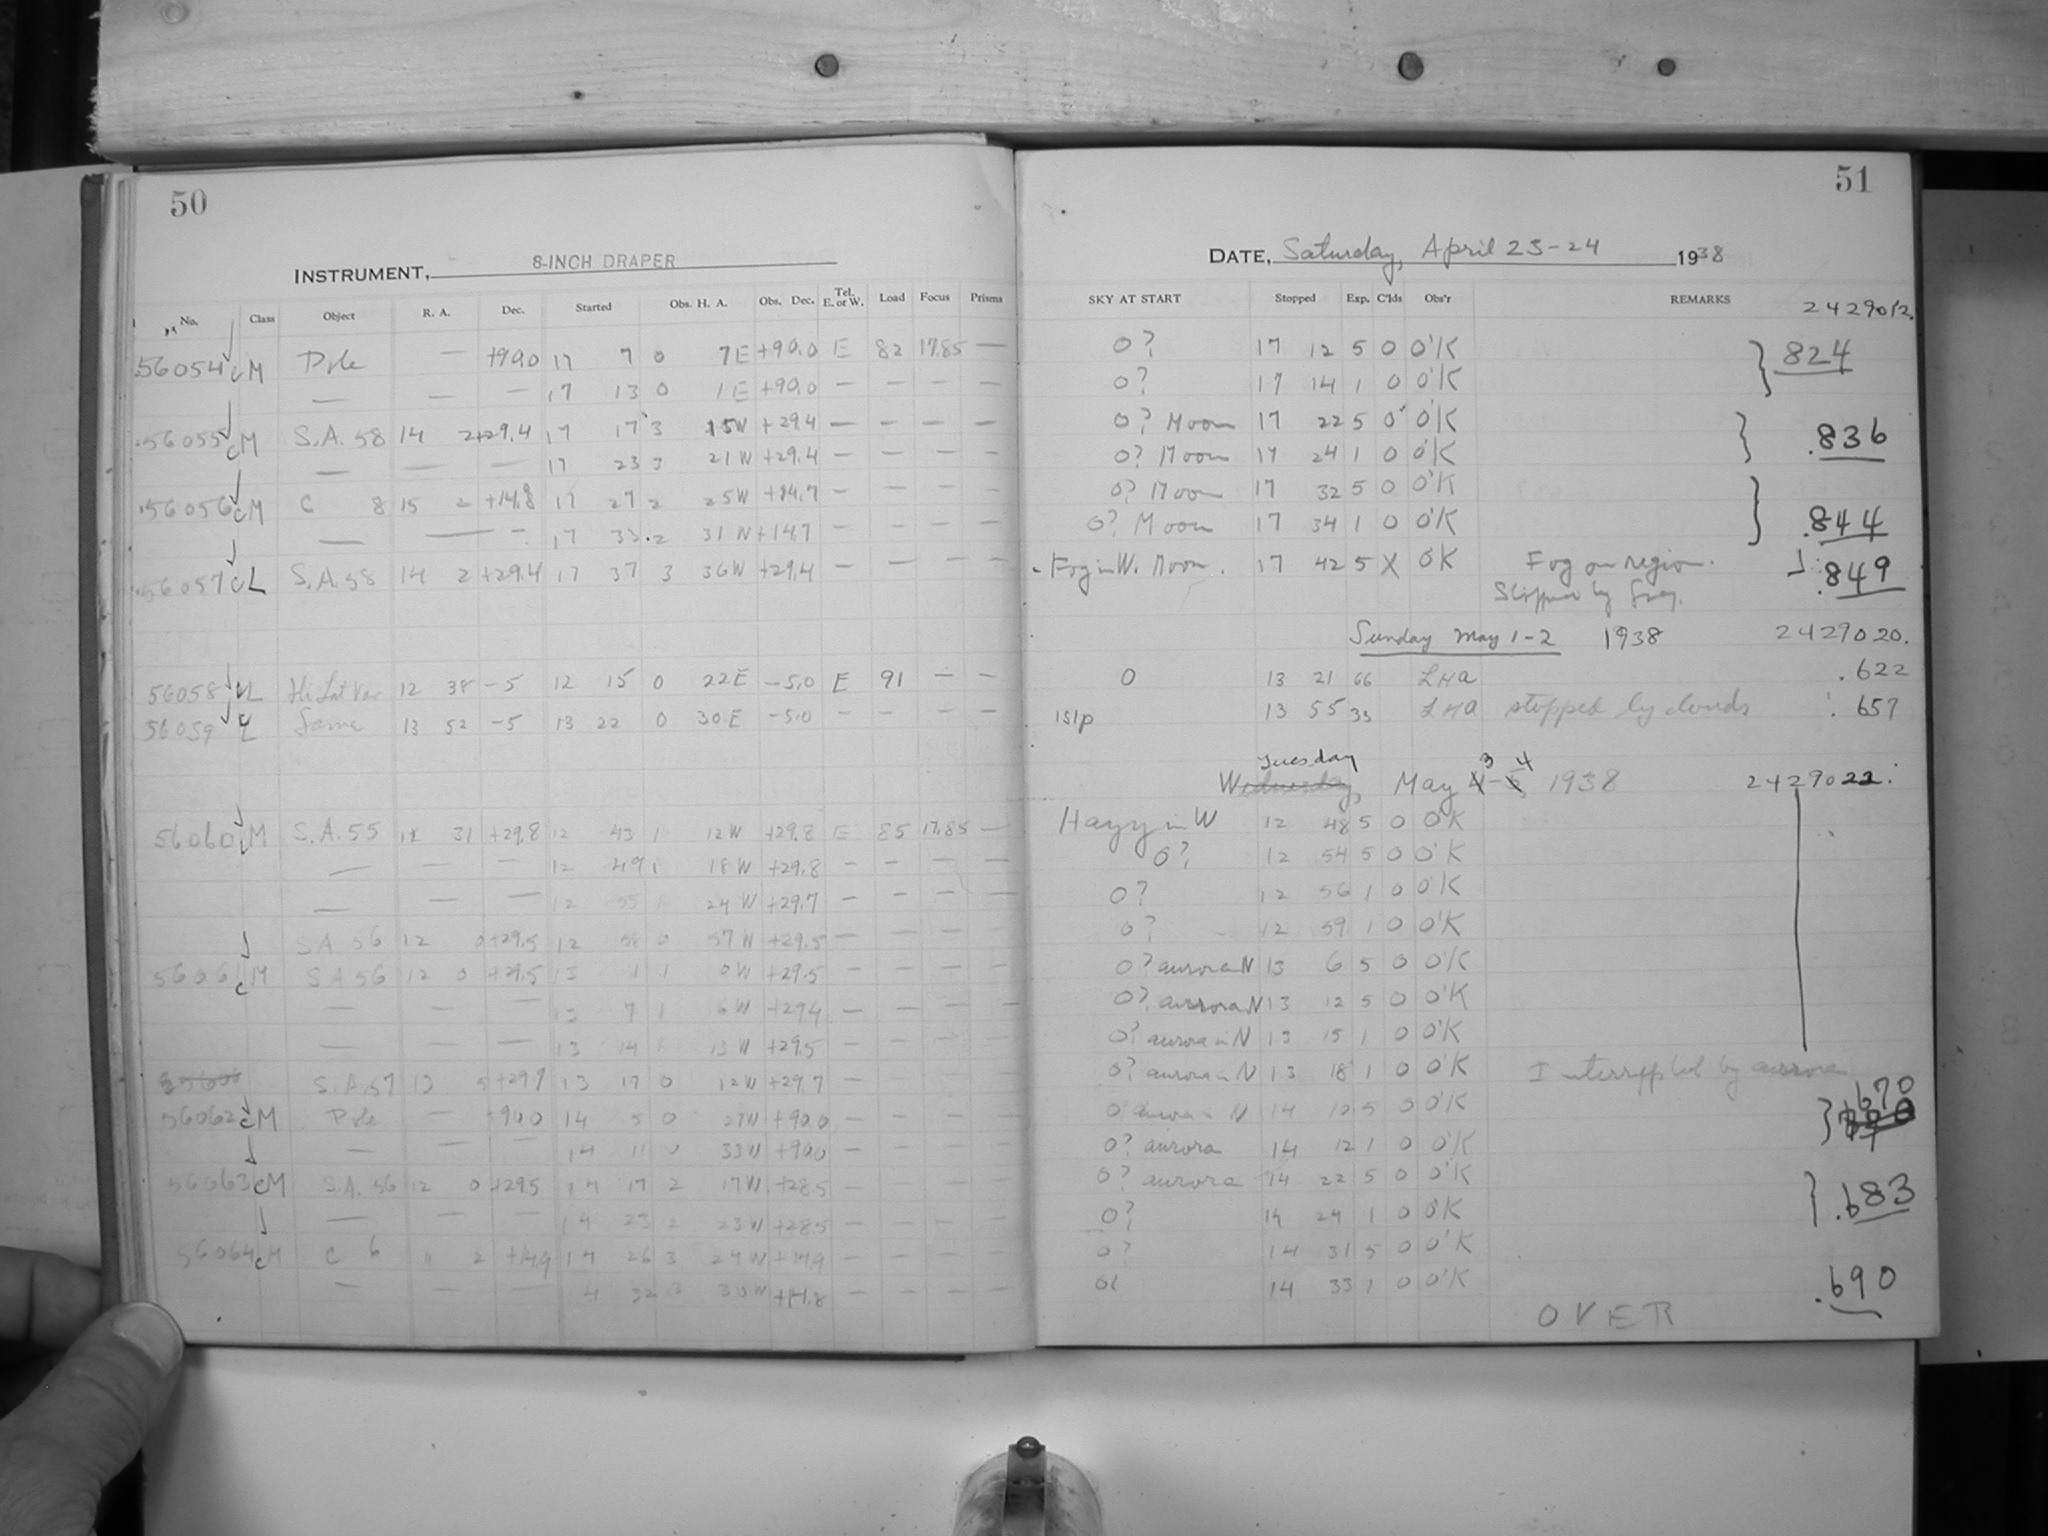 50
INSTRUMENT, 8-INCH DRAPER
No. Class Object R. A. Dec. Started Obs. H. A. Obs. Dec. Tel. E. or W. Load Focus Prisms
56054 cM Pole — +90.0 17 7 0 7E +90.0 E 82 17.85 —
— — — 17 13 0 1E +90.0 — — — —
56055 cM S.A. 58 14 2 +29.4 17 17 3 15W +29.4 — — — —
— — — 17 23 3 21W +29.4 — — — —
56056 cM C 8 15 2 +14.8 17 27 2 25W +14.7 — — — —
— — — 17 33 2 31W +14.7 — — — —
56057 cL S.A. 58 14 2 +29.4 17 37 3 36W +29.4 — — — —
56058 L Hi Lat Var 12 38 -5 12 15 0 22E -5.0 E 91 — —
56059 L Same 13 52 -5 13 22 0 30E -5.0 — — — —
56060 cM S.A. 55 11 31 +29.8 12 43 1 12W +29.8 E 85 17.85 —
— — — 12 49 1 18W +29.8 — — — —
— — — 12 55 1 24W +29.7 — — — —
S.A 56 12 0 +29.5 12 58 0 57W +29.5 — — — —
56061 cM S A 56 12 0 +29.5 13 1 1 0W +29.5 — — — —
— — — 13 7 1 6W +29.4 — — — —
— — — 13 14 1 13W +29.5 — — — —
S.A. 57 13 5 +29.7 13 17 0 12W +29.7 — — — —
56062 cM Pole — +90.0 14 5 0 27W +90.0 — — — —
— — — 14 11 0 33W +90.0 — — — —
56063 cM S.A. 56 12 0 +29.5 14 17 2 17W +28.5 — — — —
— — — 14 23 2 23W +28.5 — — — —
56064 cM C 6 11 2 +14.9 14 26 3 24W +14.9 — — — —
— — — 14 32 3 30W +14.8 — — — —
51
DATE, Saturday, April 23-24 1938
SKY AT START Stopped Exp. C'lds Obs'r REMARKS
2429012.
0? 17 12 5 0 O'K .824
0? 17 14 1 0 O'K
0? Moon 17 22 5 0 O'K .836
0? Moon 17 24 1 0 O'K
0? Moon 17 32 5 0 O'K
0? Moon 17 34 1 0 O'K .844
Fog in W. Moon. 17 42 5 X OK Fog on region. .849
Stopped by fog.
Sunday May 1-2 1938 2429020.
0 13 21 66 LHA .622
1S1p 13 55 33 LHA stopped by clouds .657
Tuesday 3 4
Wednesday, May 4-5, 1938 2429022.
Hazy in W 12 48 5 0 O'K
0? 12 54 5 0 O'K
0? 12 56 1 0 O'K
0? 12 59 1 0 O'K
0? aurora N 13 6 5 0 O'K
0? aurora N 13 12 5 0 O'K
0? aurora in N 13 15 1 0 O'K
0? aurora in N 13 18 1 0 O'K Interrupted by aurora
.670
0? aurora in N 14 10 5 0 O'K
0? aurora 14 12 1 0 O'K
0? aurora 14 22 5 0 O'K .683
0? 14 24 1 0 O'K
0? 14 31 5 0 O'K
0? 14 33 1 0 O'K .690
OVER